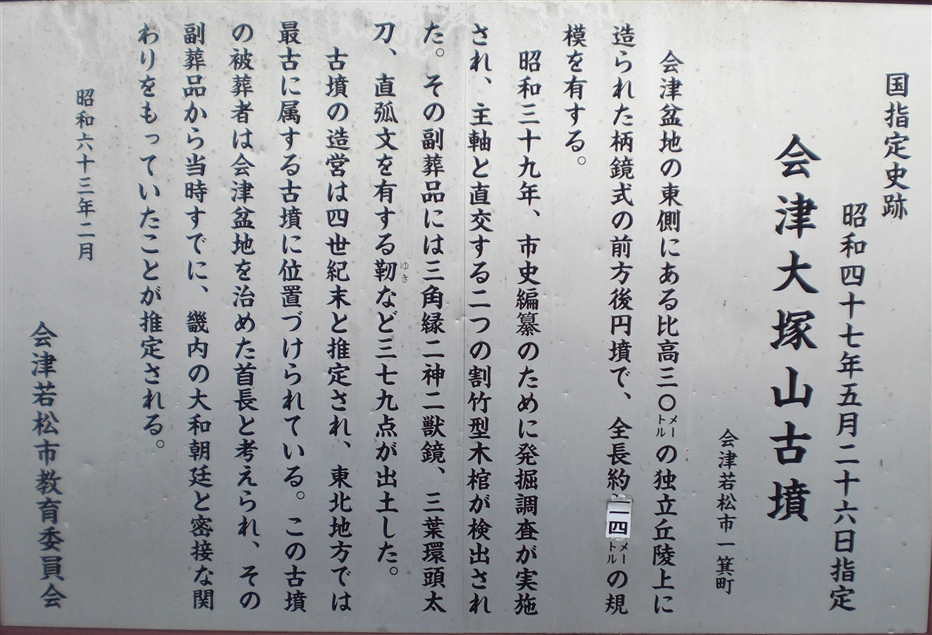 国指定史跡
昭和四十七年五月二十六日指定
会津大塚山古墳
会津若松市一箕町
会津盆地の東側にある比高三〇メートルの独立丘陵上に
造られた柄鏡式の前方後円墳で、全長約一一四メートルの規
模を有する。
昭和三十九年、市史編纂のために発掘調査が実施
され、主軸と直交する二つの割竹型木棺が検出され
た。その副葬品には三角緑二神二獣鏡、三葉環頭太
刀、直弧文を有する靭ゆきなど三七九点が出土した。
古墳の造営は四世紀末と推定され、東北地方では
最古に属する古墳に位置づけられている。この古墳
の被葬者は会津盆地を治めた首長と考えられ、その
副葬品から当時すでに、畿内の大和朝廷と密接な関
わりをもっていたことが推定される。
昭和六十三年二月
会津若松市教育委員会